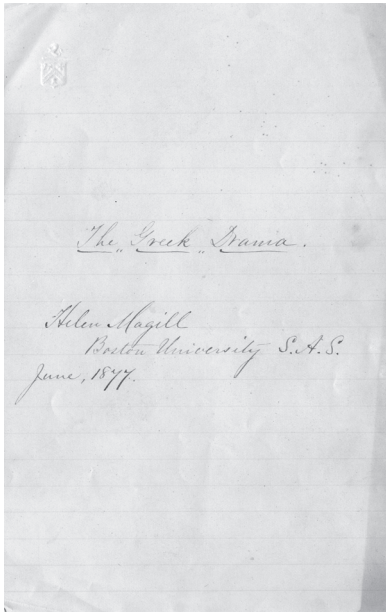 The „ Greek „ Drama.
Helen Magill
Boston University S.A.S.
June, 1877.